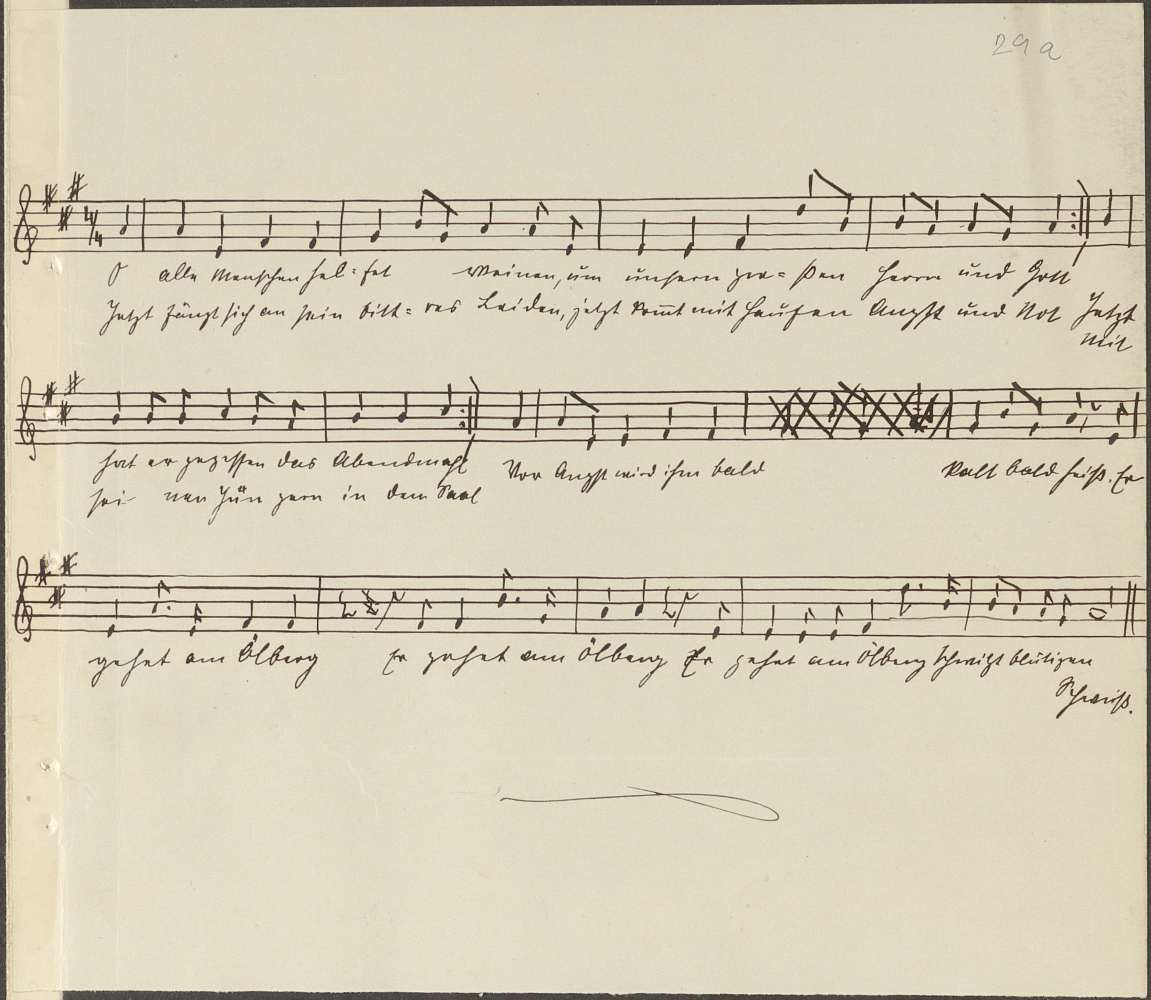 29 a
4/4
O alle Menschen hel=fet weinen, um unsern gro=ßen Herrn und Gott
Jetzt fängt sich an sein bitt=res Leiden, jetzt kommt mit Haufen Angst und Not Jetzt
mit
hat er gegessen das Abendmahl Vor Angst wird ihm bald kalt bald heiß. Er
sei nen Jün gern in dem Saal
gehet am Ölberg Er gehet am Ölberg Er gehet am Ölberg schwitzt blutigen
Schweiß.